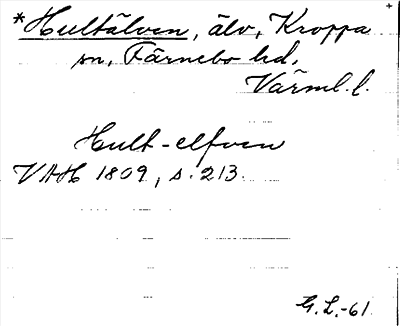 *Hultälven, älv, Kroppa
sn, Färnebo hd,
Värml. l.
Hult-elfven
VAH 1809, s. 213.
G. L. -61